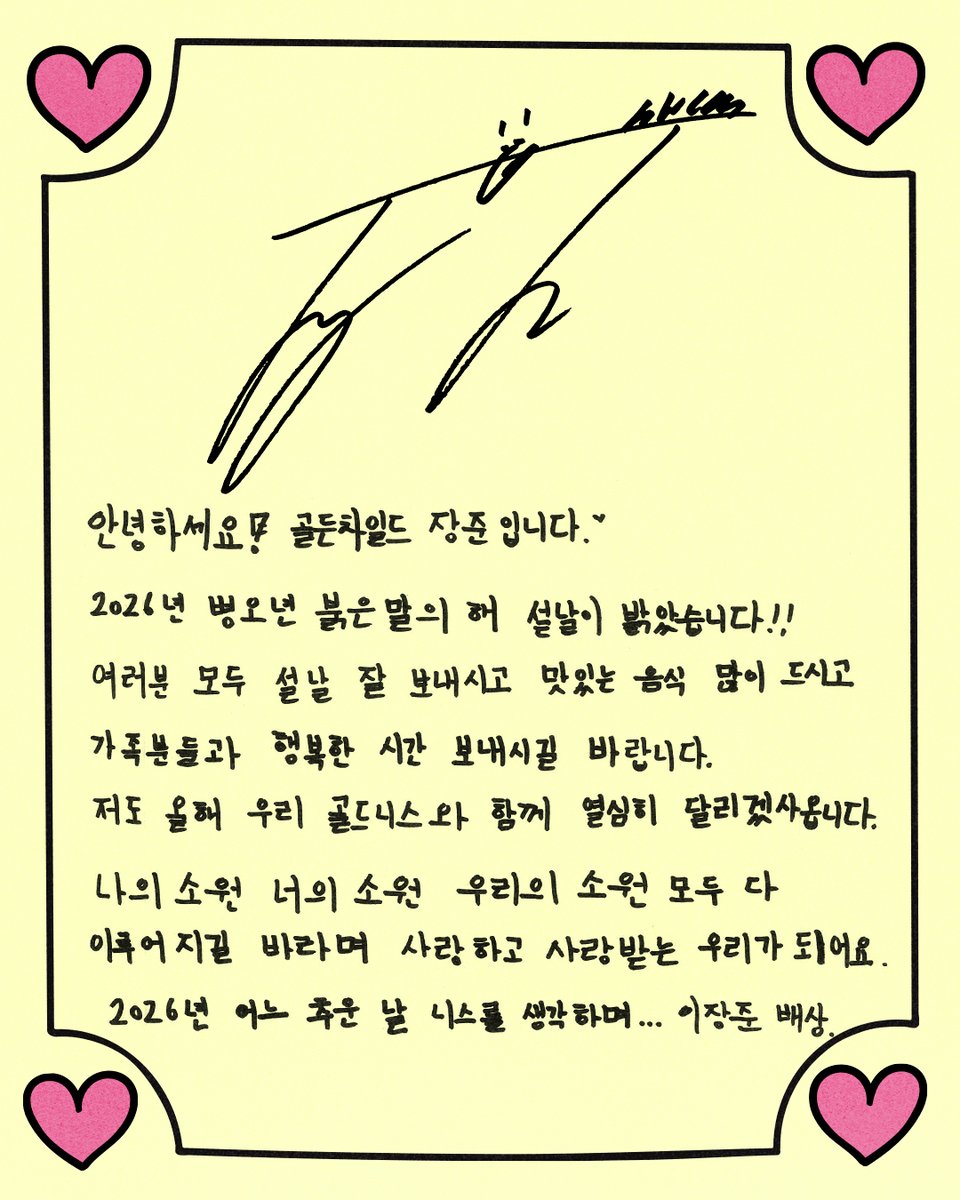 안녕하세요! 골든차일드 장준입니다.♥
2026년 병오년 붉은말의 해 설날이 밝았습니다!!
여러분 모두 설날 잘 보내시고 맛있는 음식 많이 드시고
가족분들과 행복한 시간 보내시길 바랍니다.
저도 올해 우리 골드니스와 함께 열심히 달리겠사옵니다.
나의 소원 너의 소원 우리의 소원 모두 다
이루어지길 바라며 사랑하고 사랑받는 우리가 되어요.
2026년 어느 추운 날 니스를 생각하며... 이장준 배상.